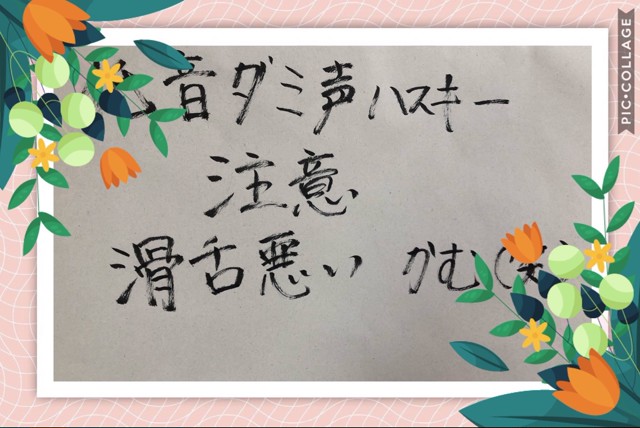 音ダミ声ハスキー
注意
滑舌悪い かむ(笑)
PIC•COLLAGE